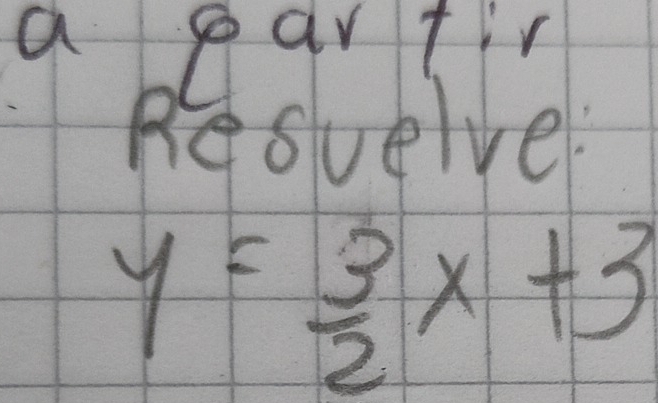 a partir
Resuelve:
y = 3/2 x + 3